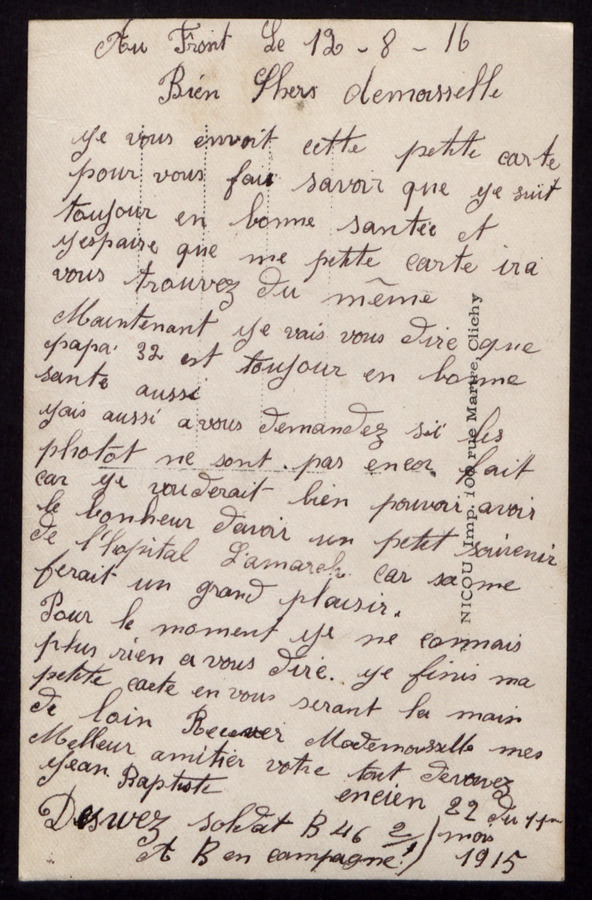 Au Front Le 12 - 8 - 16
Bien Chers demoisselle
ye vous envoit cette petite carte
pour vous fair savoir que ye suit
toujour en bonne santée et
yespaire que me petite carte ira
vous trouvez du même
Maintenant ye vais vous dire que
papa 32 est toujour en bonne
sante aussi
yais aussi a vous demandez si les
photot ne sont pas encor fait
car ye vouderait bien pouvoir avoir
le bonheur davoir un petit souvenir
de l'hopital Lamarck car sa me
ferait un grand plaisir.
Pour le moment ye ne connais
plus rien a vous dire. ye finis ma
petite carte en vous serant la main
de loin Recever Mademoisselle mes
Melleur amitier votre tout devouez
yean Baptiste
encien 22 du
Deswez soldat B 46 2 mois
A B en campagne! 1915
NICOU Imp. 100 rue Martre, Clichy